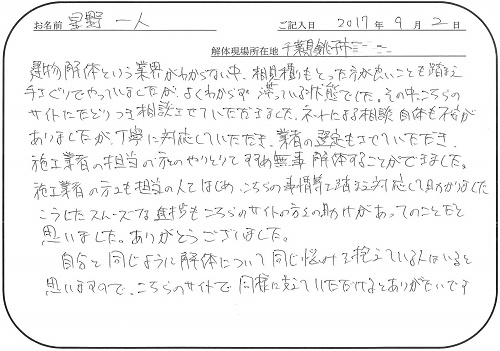 お名前 星野 一人 ご記入日 2017年9月2日
解体現場所在地 千葉県銚子市
建物解体という業界がわからない中、相見積もとった方が良いことも踏まえ
手さぐりでやっていましたが、よくわからず滞っている状態でした。その中、こちらの
サイトにたどりつき相談させていただきました。ネットによる相談自体も不安が
ありましたが、丁寧に対応していただき、業者の選定もさせていただき、
施工業者の担当の方とのやりとりですすめ無事解体することができました。
施工業者の方も担当の人をはじめ、こちらの事情等を踏まえ対応して助かりました
こうしたスムーズな進捗もこちらのサイトの方々の助けがあってのことだと
思いました。ありがとうございました。
自分と同じように解体について同じ悩みを抱えている人はいると
思いますので、こちらのサイトで同様に支えていただけるとありがたいです